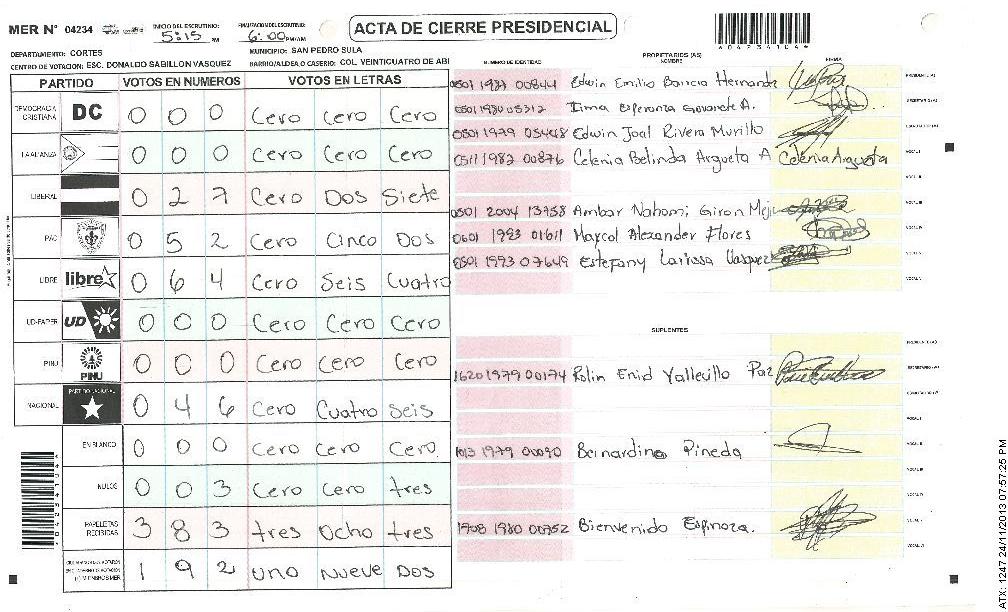 MER N° 04234 INICIO DEL ESCRUTINIO: 5:15 PM FINALIZACION DEL ESCRUTINIO: 6:00 PM/AM ACTA DE CIERRE PRESIDENCIAL
DEPARTAMENTO: CORTES MUNICIPIO: SAN PEDRO SULA
CENTRO DE VOTACION: ESC. DONALDO SABILLON VASQUEZ BARRIO/ALDEA O CASERIO: COL VEINTICUATRO DE ABI
PARTIDO VOTOS EN NUMEROS VOTOS EN LETRAS
DEMOCRACIA CRISTIANA DC 0 0 0 Cero Cero Cero
LA ALIANZA 0 0 0 Cero Cero Cero
LIBERAL 0 2 7 Cero Dos Siete
PAC 0 5 2 Cero Cinco Dos
LIBRE libre 0 6 4 Cero Seis Cuatro
UD-FAPER UD 0 0 0 Cero Cero Cero
PINU PINU 0 0 0 Cero Cero Cero
NACIONAL PARTIDO NACIONAL 0 4 6 Cero Cuatro Seis
EN BLANCO 0 0 0 Cero Cero Cero.
NULOS 0 0 3 Cero Cero tres
PAPELETAS RECIBIDAS 3 8 3 tres Ocho tres
1 9 2 Uno Nueve Dos
NUMERO DE IDENTIDAD PROPIETARIOS (AS) NOMBRE FIRMA
0501 1987 00844 Edwin Emilio Barcia Hernande
0501 1980 05312 Irma Esperanza A.
0501 1979 05448 Edwin Joal Rivera Murillo
0511 1982 00876 Celenia Belinda Argueta A Celenia Argueta
0501 2004 13758 Ambar Nahomi Giron Meji
0601 1993 01611 Marcol Alexander Flores
0501 1993 07649 Estefany Larissa Vasquez
SUPLENTES
1620 1979 00174 Rolin Enid Vallecillo Paz
1013 1979 00090 Bernardino Pineda
1708 1980 00752 Bienvenido Espinoza.
ATX: 1247 24/11/2013 07:57:25 PM